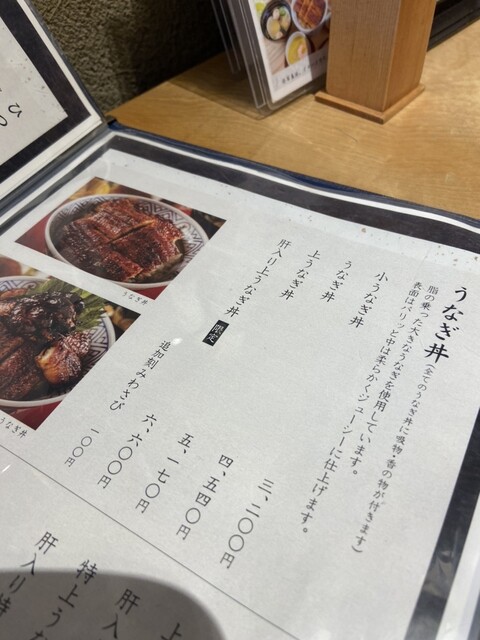 うなぎ丼(全てのうなぎ丼に吸物・香の物が付きます)
脂の乗った大きなうなぎを使用しています。
表面はパリッと中は柔らかくジューシーに仕上げます。
小うなぎ丼 三、二〇〇円
うなぎ丼 四、五四〇円
上うなぎ丼 五、一七〇円
肝入り上うなぎ丼 限定 六、六〇〇円
追加刻みわさび 一〇〇円
うなぎ丼
うなぎ丼
上
肝入
特上う
肝入り特
ひつ